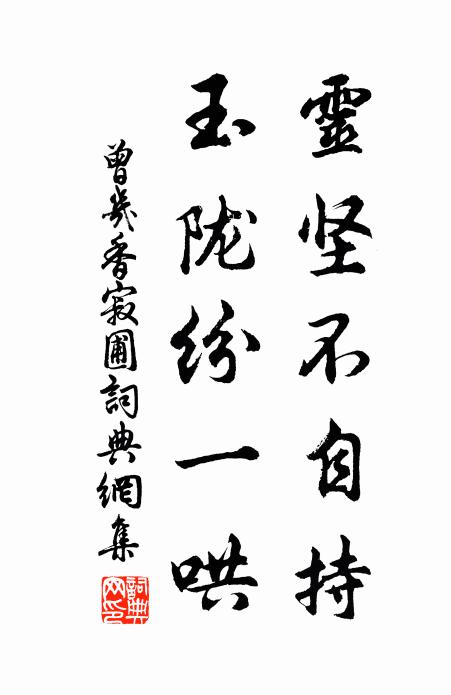 靈坚不自持
玉陇纷一哄
曾幾香寂圃詞典網集
詞典網印